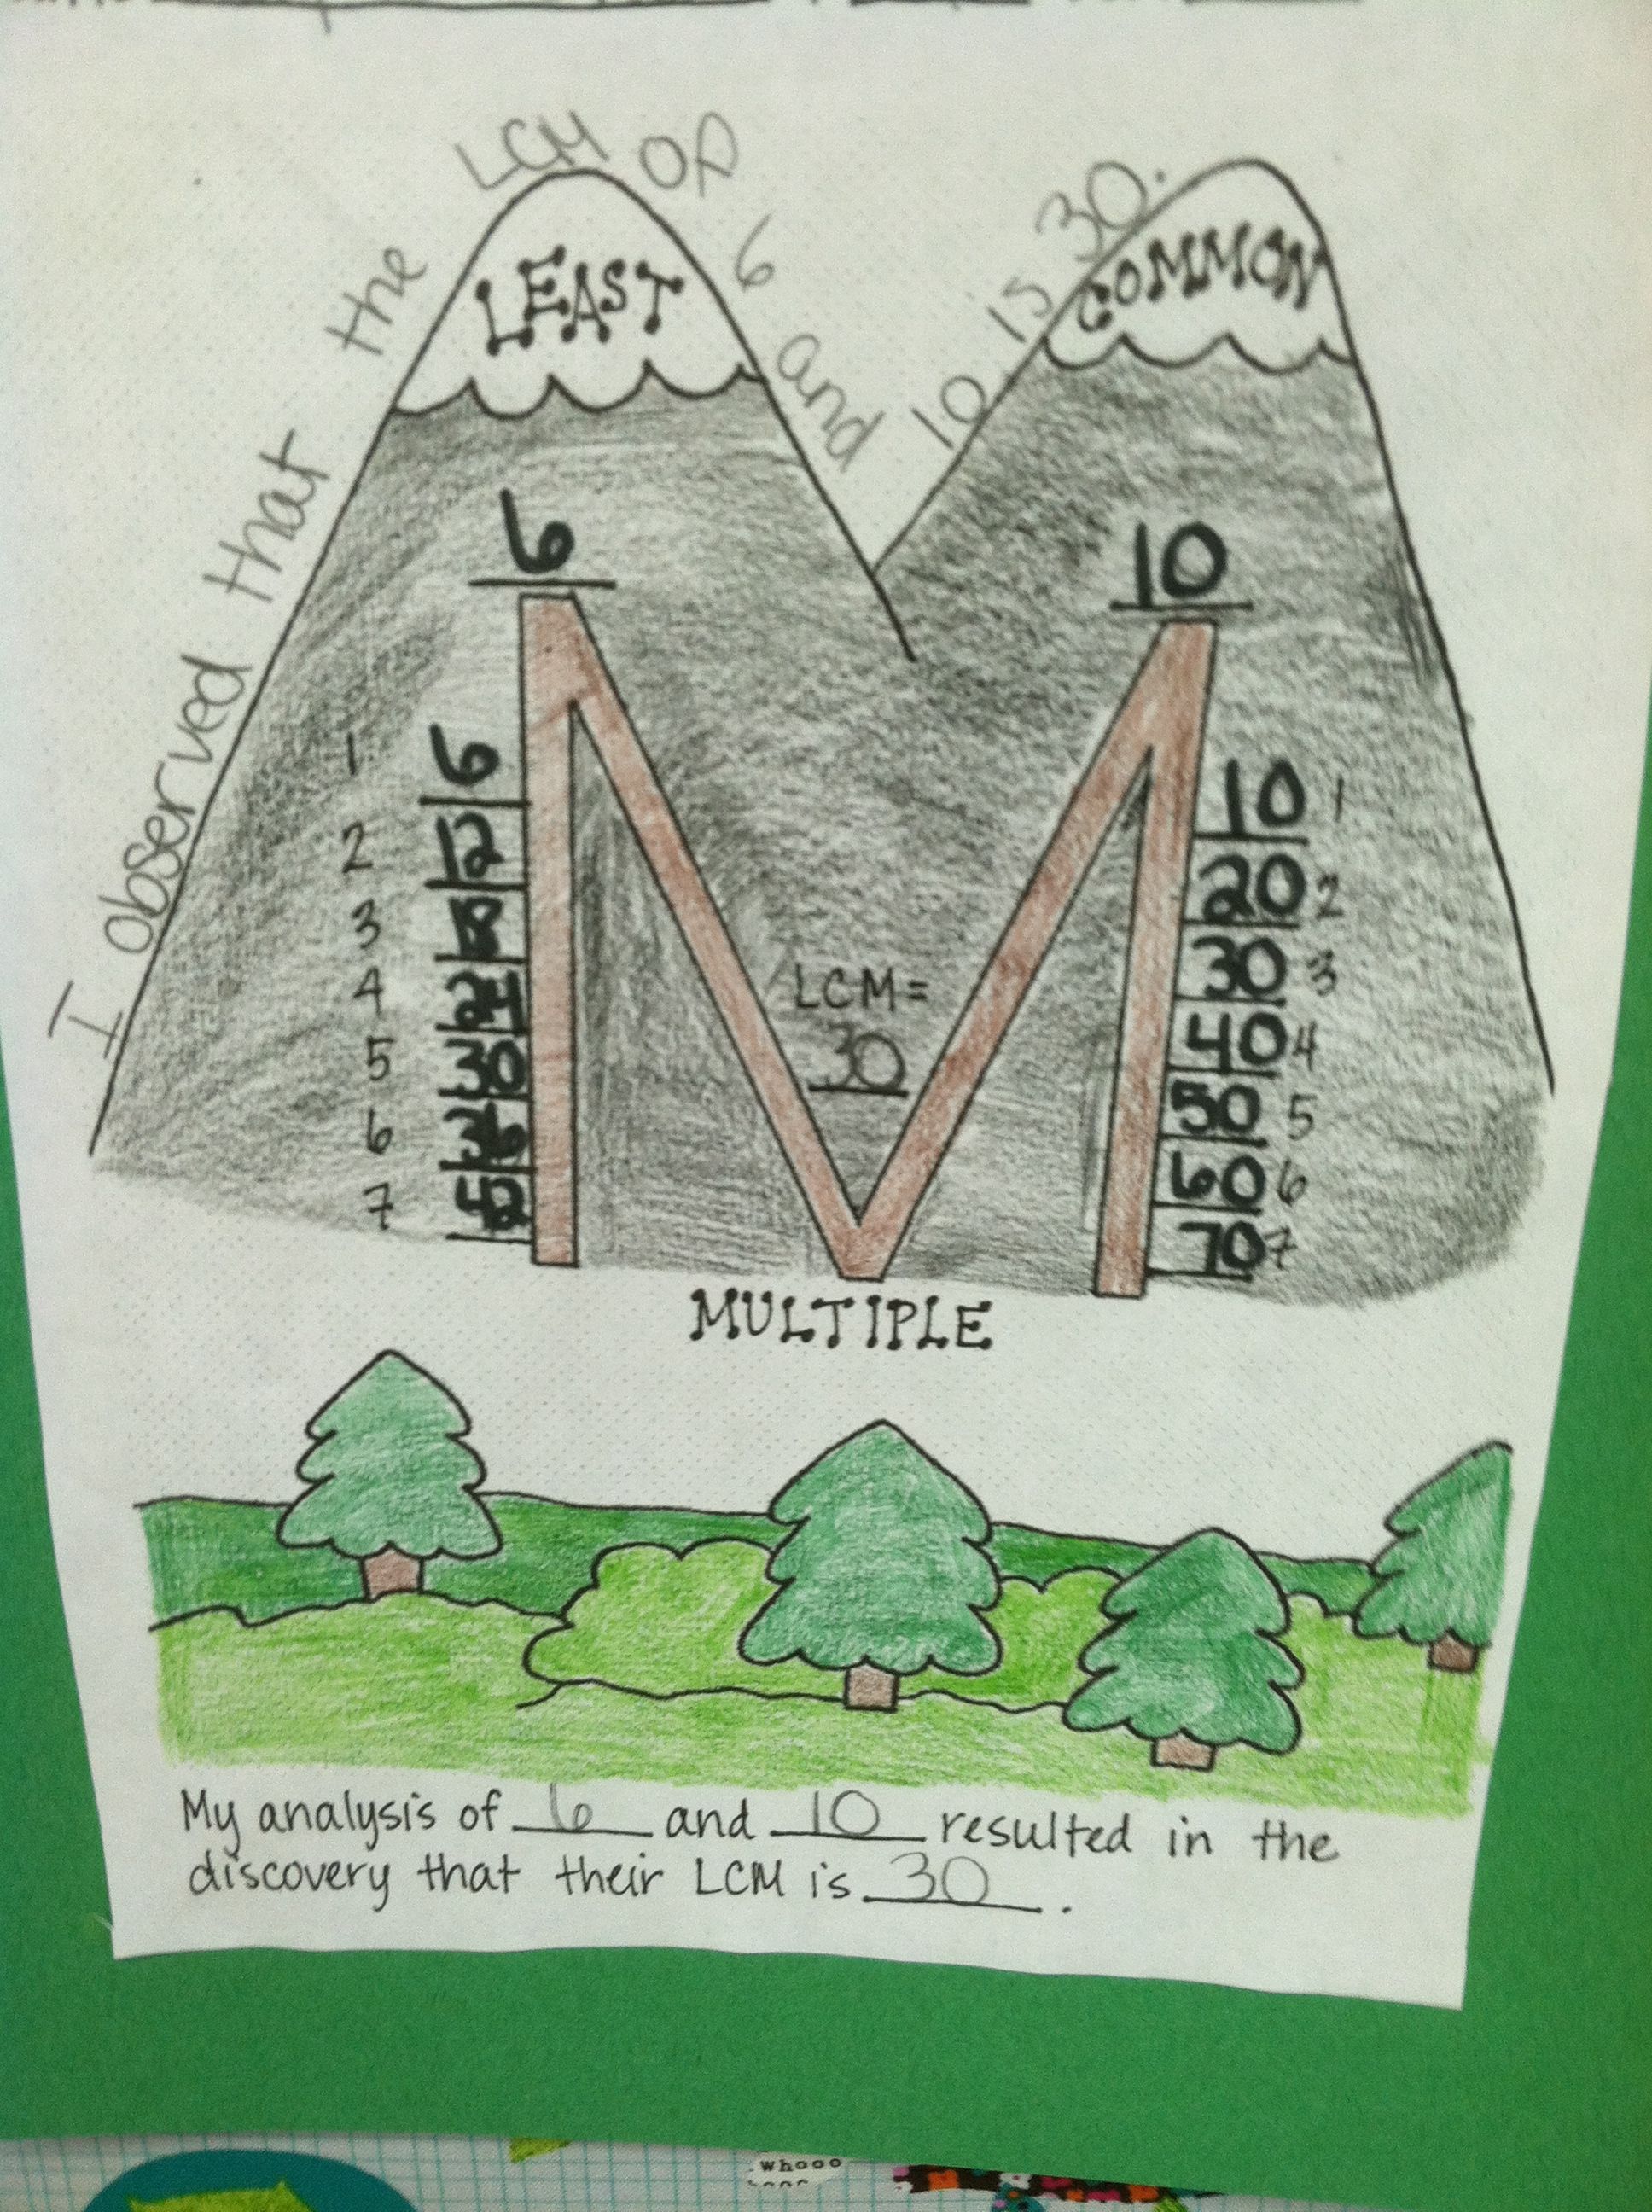 I observed that the LCM of 6 and 10 is 30.
LEAST
COMMON
6
10
1 6
2 12
3 18
4 24
5 30
6 36
7 42
10 1
20 2
30 3
40 4
50 5
60 6
70 7
LCM=
30
MULTIPLE
My analysis of 6 and 10 resulted in the
discovery that their LCM is 30.
whooo